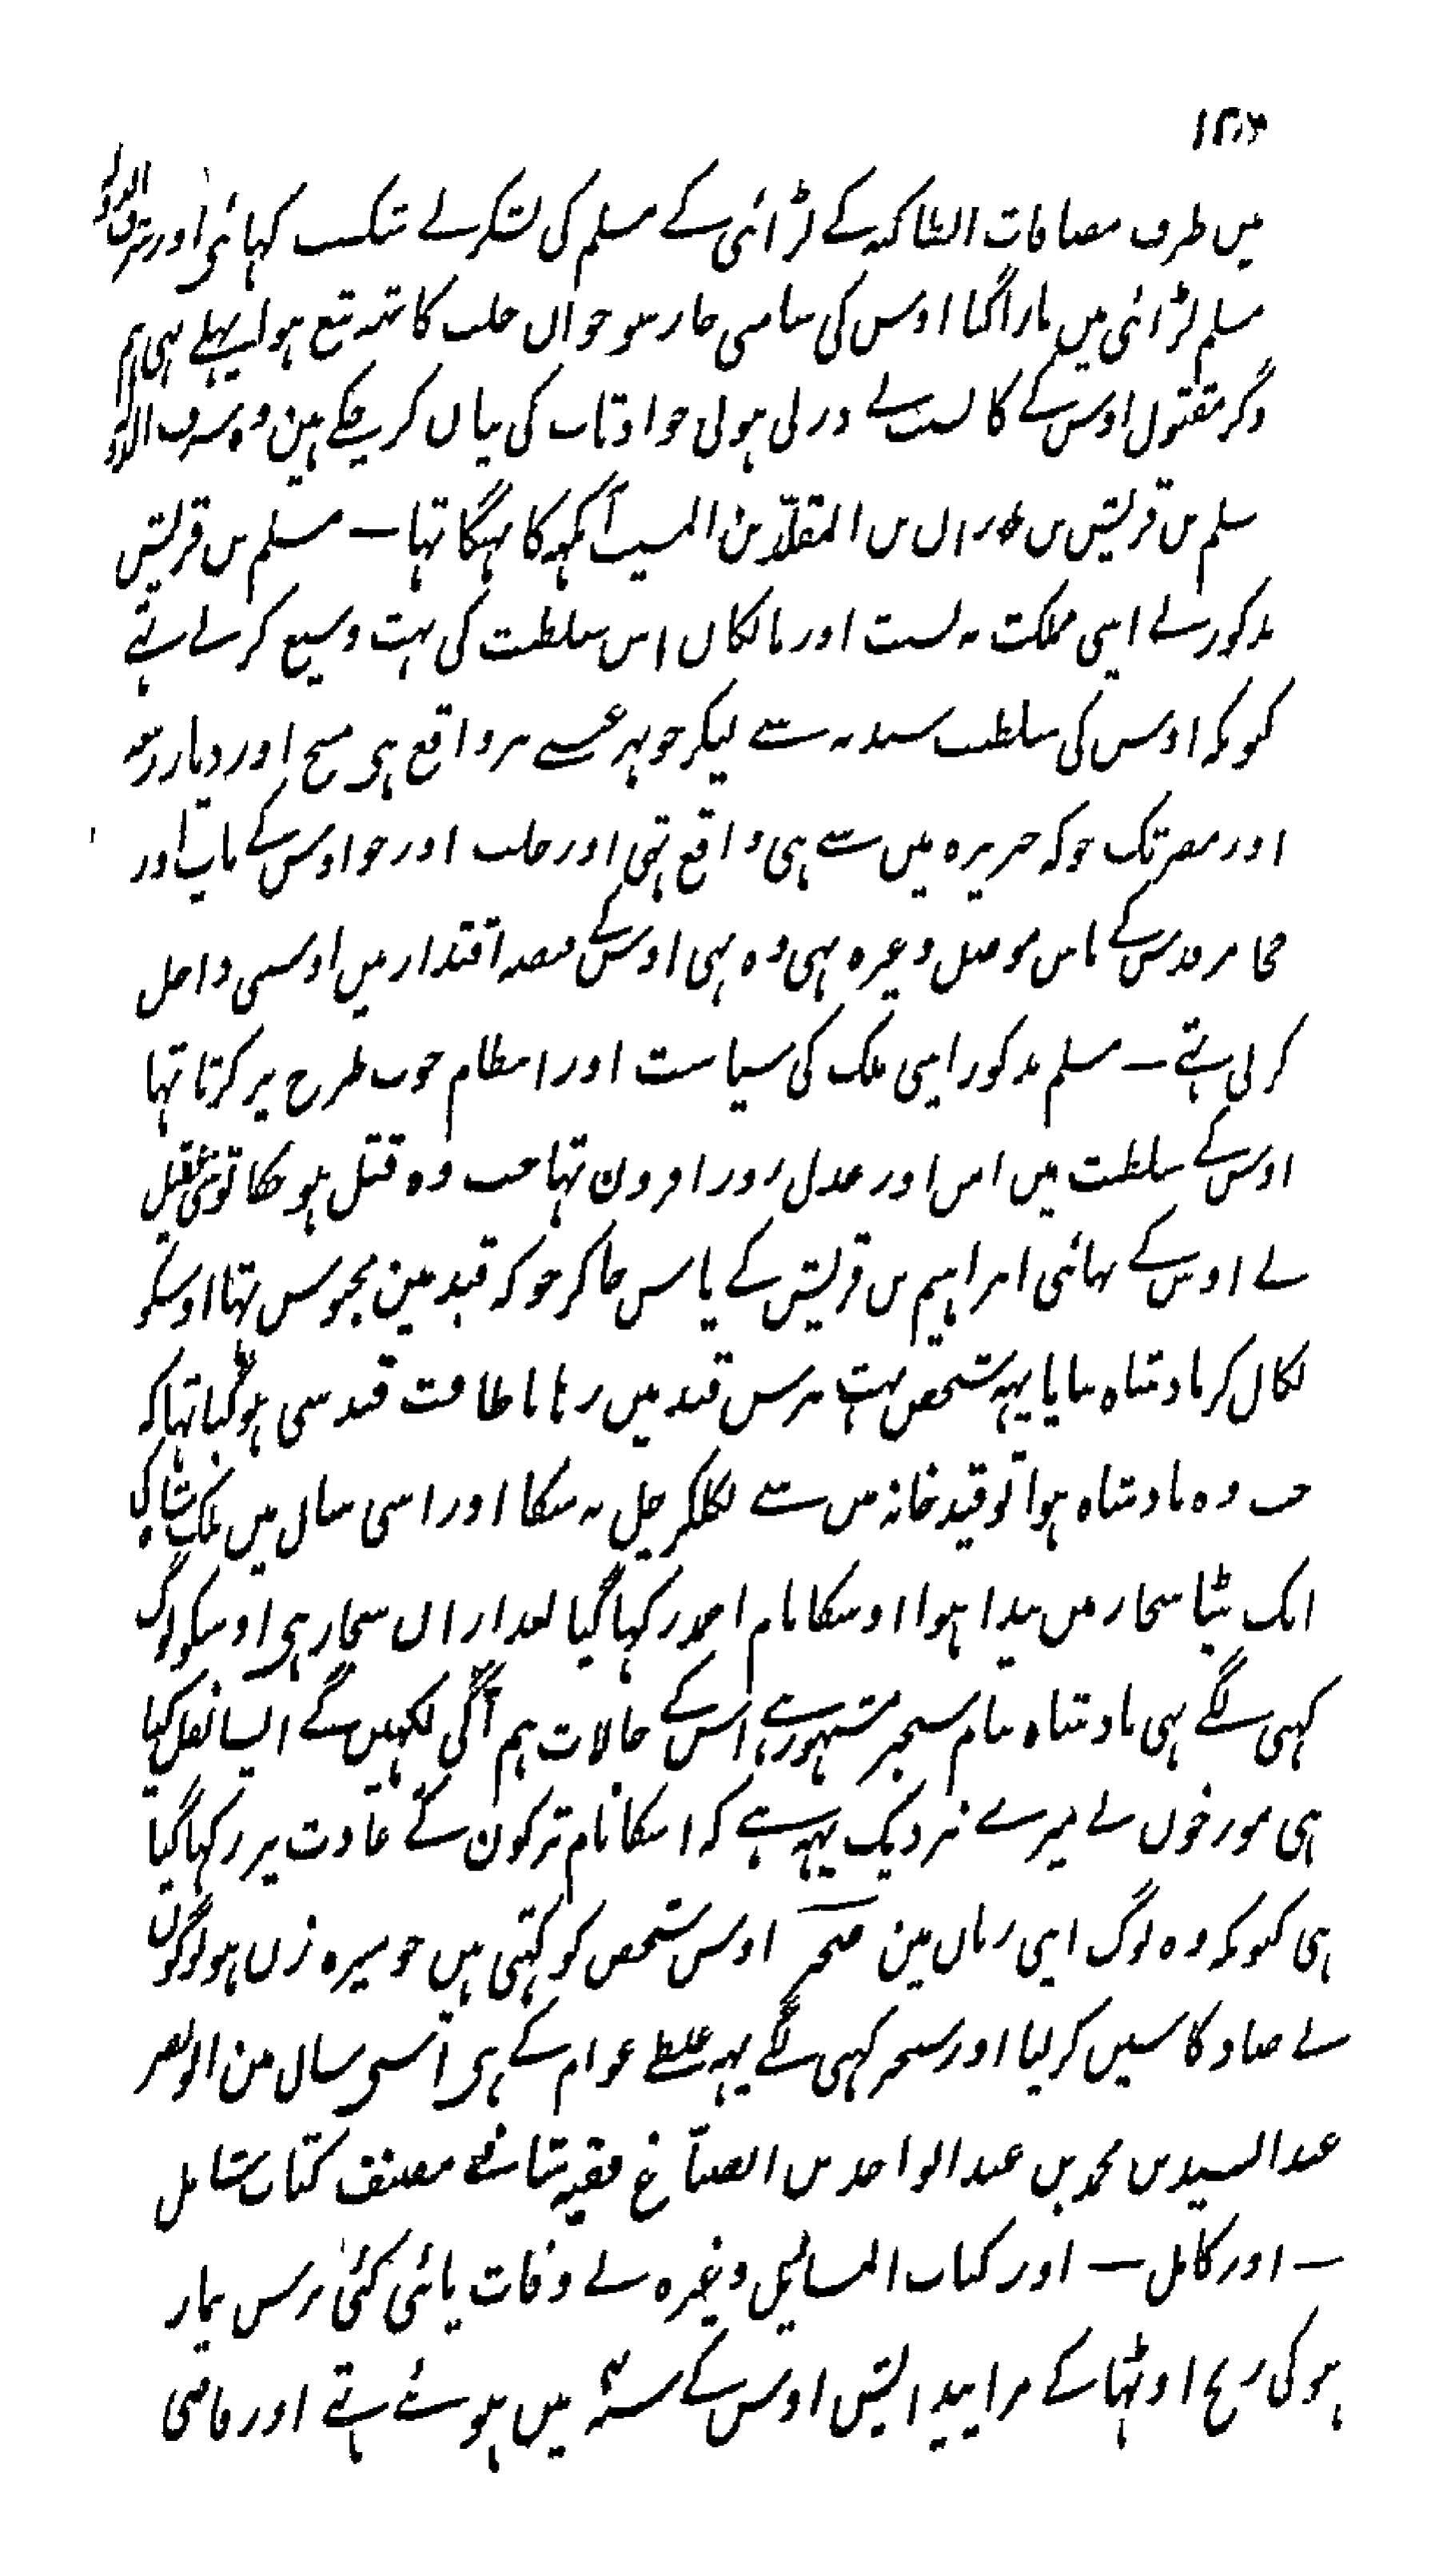 میں طرف مضافات انطاکیہ کے لڑائی کے مسلم کی لشکر نے شکست کہائی اور شرف الدولہ
مسلم لڑائی میں مارا گیا اوس کی سامنی چار سو جوان حلب کا تہ تیغ ہوا پہلے ہی ہم
ذکر مقتول اوس کے کا نسب نے در لی ہوئی حوادثات کی بیان کر چکے ہین وہ شرف الدولہ
مسلم بن قریش بن بدران بن المقلّد بن المسیب آنکہہ کا بہنگا تہا — مسلم بن قریش
مذکور نے اپنی مملکت بہ نسبت اور مالکان اس سلطنت کی بہت وسیع کر لے تہے
کیونکہ اوس کی سلطنت سندیہ سے لیکر جو نہر عیسے پر واقع ہی منبج اور دیار ربیعہ
اور مصر تک جو کہ جزیرہ میں سے ہی واقع تہی اور حلب اور جو اوس کے باپ اور
چچا قرواش کے پاس موصل وغیرہ تہی وہ بہی اوس کے قبضہ اقتدار میں اوسنی داخل
کر لی تہے — مسلم مذکور اپنی ملک کی سیاست اور انتظام خوب طرح پر کرتا تہا
اوس کے سلطنت میں امن اور عدل روز افزون تہا جب وہ قتل ہو چکا تو بنی عقیل
نے اوس کے بہائی ابراہیم بن قریش کے پاس جا کر جو کہ قید مین محبوس تہا اوسکو
نکال کر بادشاہ بنایا یہہ شخص بہت برس قید میں رہا با طاقت قید سی ہو گیا تہا کہ
جب وہ بادشاہ ہوا تو قید خانہ میں سے نکلکر چل نہ سکا اور اسی سال میں ملک شاہ کی
ایک بیٹا سنجار میں پیدا ہوا اوسکا نام احمد رکہا گیا بعد ازان سنجار ہی اوسکو لوگ
کہنی لگے یہی بادشاہ بنام سنجر مشہور ہے اس کے حالات ہم آگی لکہیں گے ایسا نقل کیا
ہی مورخوں نے میرے نزدیک یہہ ہے کہ اسکا نام ترکون کے عادت پر رکہا گیا
ہی کیونکہ وہ لوگ اپنی زبان مین صنجر اوس شخص کو کہتی ہیں جو نیزہ زن ہو لوگون
نے صاد کا سین کر لیا اور سنجر کہنی لگے یہہ غلطے عوام کے ہی اسی سال مین ابو نصر
عبد السید بن محمد بن عبد الواحد بن الصبّاغ فقیہ شافعی مصنف کتاب شامل
— اور کامل — اور کتاب المسائل وغیرہ نے وفات پائی کئی برس بیمار
ہو کی رنج اوٹہا کے مرا پیدائش اوس کے سنہ میں ہوئے تہے اور قاضی